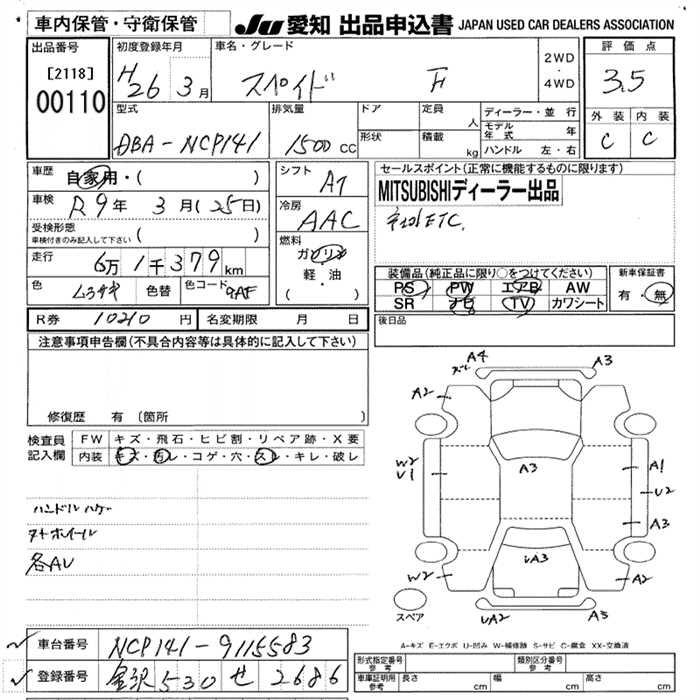 車内保管・守衛保管
JU 愛知 出品申込書 JAPAN USED CAR DEALERS ASSOCIATION
出品番号 初度登録年月 車名・グレード 2WD ・ 4WD 評価点
[2118] H26 3月 スペイド F 3.5
00110 外装 内装
型式 排気量 ドア 定員 人 ディーラー・並行 C C
モデル年式 年
DBA-NCP141 1500cc 形状 積載 kg ハンドル 左・右
車歴 自家用・( ) シフト AT セールスポイント(正常に機能するものに限ります)
車検 R9年 3月(25日) 冷房 AAC MITSUBISHIディーラー出品
受検形態 車検付きのみ記入して下さい ( ) ETC.
走行 6万1千379km 燃料 ガソリン 軽・油 ( )
装備品(純正品に限り○をつけてください) 新車保証書
PS PW エアB AW 有・無
色 ムラサキ 色替 色コード 9AF SR ナビ TV カワシート
R券 10210円 名変期限 月 日 後日品
注意事項申告欄(不具合内容等は具体的に記入して下さい)
修復歴 有(箇所
検査員記入欄 FW キズ・飛石・ヒビ割・リペア跡・X要
内装 キズ・汚レ・コゲ・穴・スレ・キレ・破レ
ハンドルハゲ
ナトホイール
各AU
A4 A3
ズレ
A2
A3
W2 A1
U1 U2
A3
UA3
W2 A2
UA2 A3
スペア
A-キズ E-エクボ U-凹み W-補修跡 S-サビ C-腐食 XX-交換済
車台番号 NCP141-9115583
登録番号 金沢530せ2686
形式指定番号 参考 類別区分番号 参考
車庫証明用 参考 長さ cm 幅 cm 高さ cm